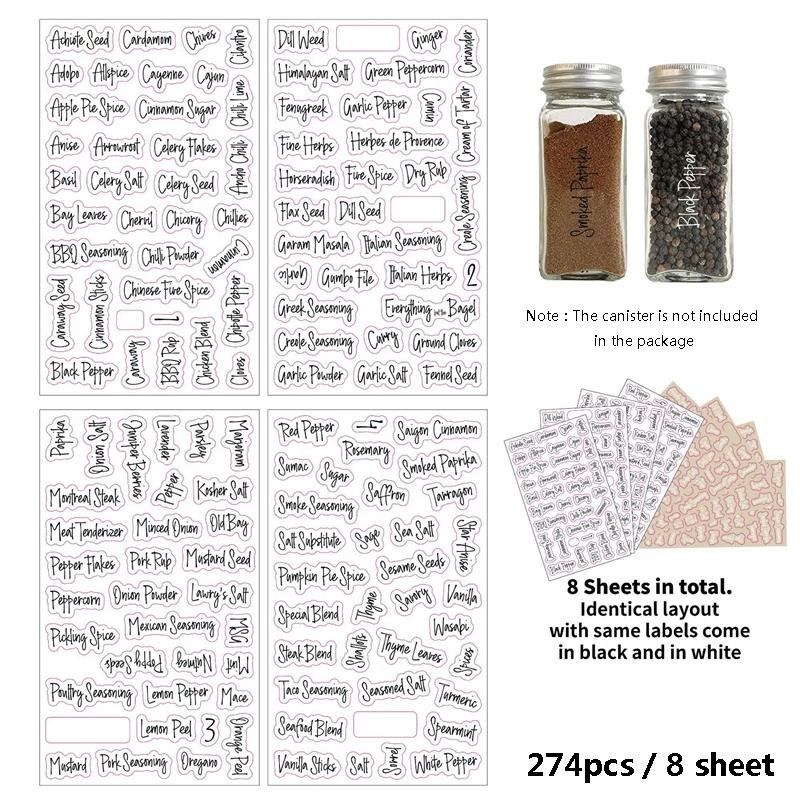 Achiote Seed Cardamom Chives Cilantro
Adobo Allspice Cayenne Cajun
Chilli Lime
Apple Pie Spice Cinnamon Sugar
Anise Arrowroot Celery Flakes
Ancho Chilli
Basil Celery Salt Celery Seed
Bay Leaves Chervil Chicory Chillies
BBQ Seasoning Chilli Powder Cinnamon
Caraway Seed Cinnamon Sticks Chinese Five Spice Chipotle Pepper
1
Black Pepper Caraway BBQ Rub Chicken Blend Cloves
Dill Weed Ginger Coriander
Himalayan Salt Green Peppercorn
Fenugreek Garlic Pepper Cumin Cream of Tartar
Fine Herbs Herbes de Provence
Horseradish Five Spice Dry Rub
Flax Seed Dill Seed Creole Seasoning
Garam Masala Italian Seasoning
Garlic Gumbo File Italian Herbs 2
Greek Seasoning Everything but the Bagel
Creole Seasoning Curry Ground Cloves
Garlic Powder Garlic Salt Fennel Seed
Paprika Onion Salt Juniper Berries Lavender Parsley Marjoram
Montreal Steak Pepper Kosher Salt
Meat Tenderizer Minced Onion Old Bay
Pepper Flakes Pork Rub Mustard Seed
Peppercorn Onion Powder Lawry's Salt
Pickling Spice Mexican Seasoning MSG
Poppy Seeds Nutmeg Mint
Poultry Seasoning Lemon Pepper Mace
Lemon Peel 3 Orange Peel
Mustard Pork Seasoning Oregano
Red Pepper 4 Saigon Cinnamon
Rosemary
Sumac Sugar Smoked Paprika
Smoke Seasoning Saffron Tarragon
Salt Substitute Sage Sea Salt Star Anise
Pumpkin Pie Spice Sesame Seeds
Special Blend Thyme Savory Vanilla
Wasabi
Steak Blend Shallots Thyme Leaves Spices
Taco Seasoning Seasoned Salt Turmeric
Seafood Blend Spearmint
Vanilla Sticks Salt Sorrel White Pepper
Smoked Paprika
Black Pepper
Note : The canister is not included
in the package
8 Sheets in total.
Identical layout
with same labels come
in black and in white
274pcs / 8 sheet